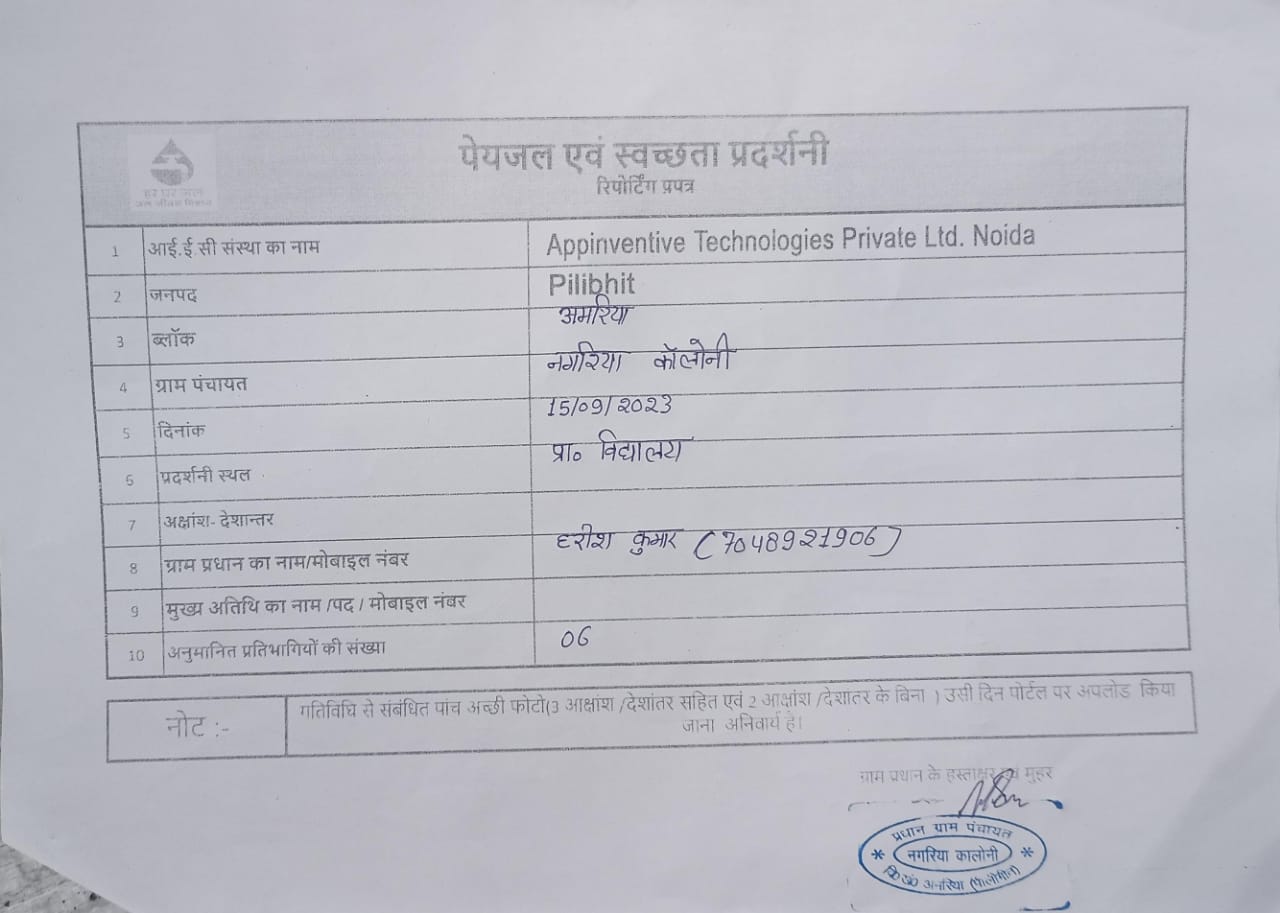 हर घर जल
जल जीवन मिशन
पेयजल एवं स्वच्छता प्रदर्शनी
रिपोर्टिंग प्रपत्र
1 आई.ई.सी संस्था का नाम Appinventive Technologies Private Ltd. Noida
2 जनपद Pilibhit
3 ब्लॉक अमरिया
4 ग्राम पंचायत नगरिया कॉलोनी
5 दिनांक 15/09/2023
6 प्रदर्शनी स्थल प्रा० विद्यालय
7 अक्षांश- देशान्तर
8 ग्राम प्रधान का नाम/मोबाइल नंबर हरीश कुमार (7048921906)
9 मुख्य अतिथि का नाम /पद / मोबाइल नंबर
10 अनुमानित प्रतिभागियों की संख्या 06
नोट :- गतिविधि से संबंधित पांच अच्छी फोटो(3 आक्षांश /देशांतर सहित एवं 2 आक्षांश /देशातर के बिना ) उसी दिन पोर्टल पर अपलोड किया
जाना अनिवार्य है।
ग्राम प्रधान के हस्ताक्षर एवं मुहर
प्रधान ग्राम पंचायत
* नगरिया कालोनी *